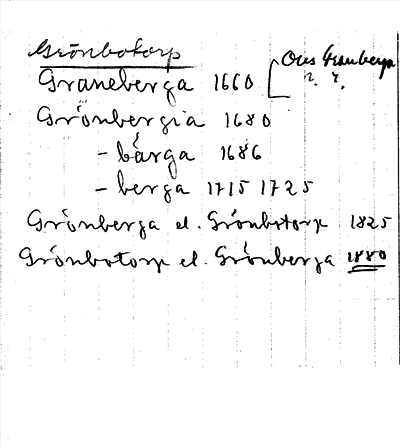 Grönbotorp
Graneberga 1660 [ Ons Granberga
n. r.
Grönbergia 1680
- bärga 1686
- berga 1715 1725
Grönberga el. Grönbotorp 1825
Grönbotorp el. Grönberga 1880